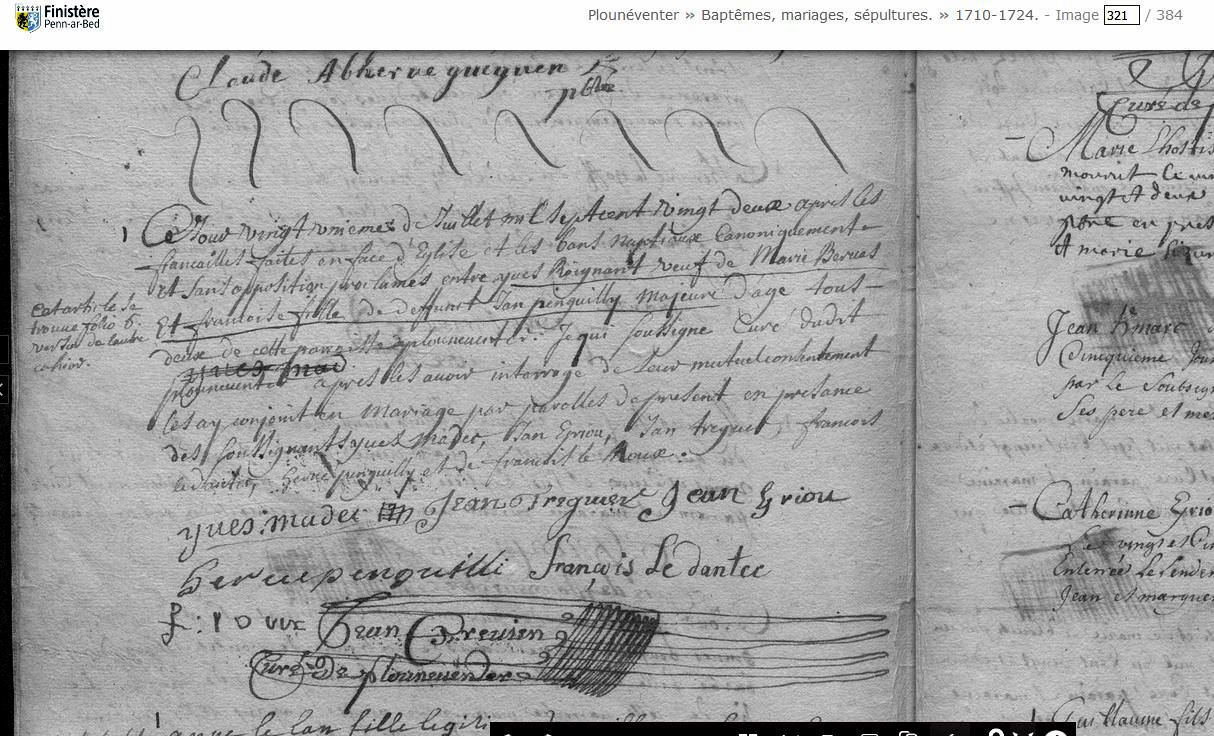 Finistère
Penn-ar-Bed
Plounéventer » Baptêmes, mariages, sépultures. » 1710-1724. - Image 321 / 384
Claude Abherve gueguen
pbtre
1 Ce Jour vingt unieme de Juillet mil sept cent vingt deux apres les
fiancailles faites en face d'Eglise et les bans nuptiaux canoniquement
Et sans opposition proclamés entre yves Roignant veuf de Marie Bervas
Et francoise fille de deffunct Jan penguilly majeure d'age tous
deux de cette parroisse de plouneventer. Je qui soussigne Curé dudit
plouneventer apres les avoir interrogé de leur mutuel consentement
les ay conjoint en Mariage par parolles de present en presance
des soussignants yves madec, Jan Griou, Jan treguer, francois
le dantec, herve penguilly et de francois le Roux.
cet article se
trouve folio 6
verso de lautre
cahier.
yves: madec Jean Treguier Jean Griou
herve penguilli françois Le dantec
f: roux Jean
Curé De plouneventer
Curé de
Marie Lhostis
mourut le
vingt et deux
pbre en pres
et marie
Jean
Cinquieme Jour
par le Soubsig
Ses pere et me
Catherinne Grio
Le vingt et
Enterrée le lende
Jean et marguer
fille legi
Guillaume fils